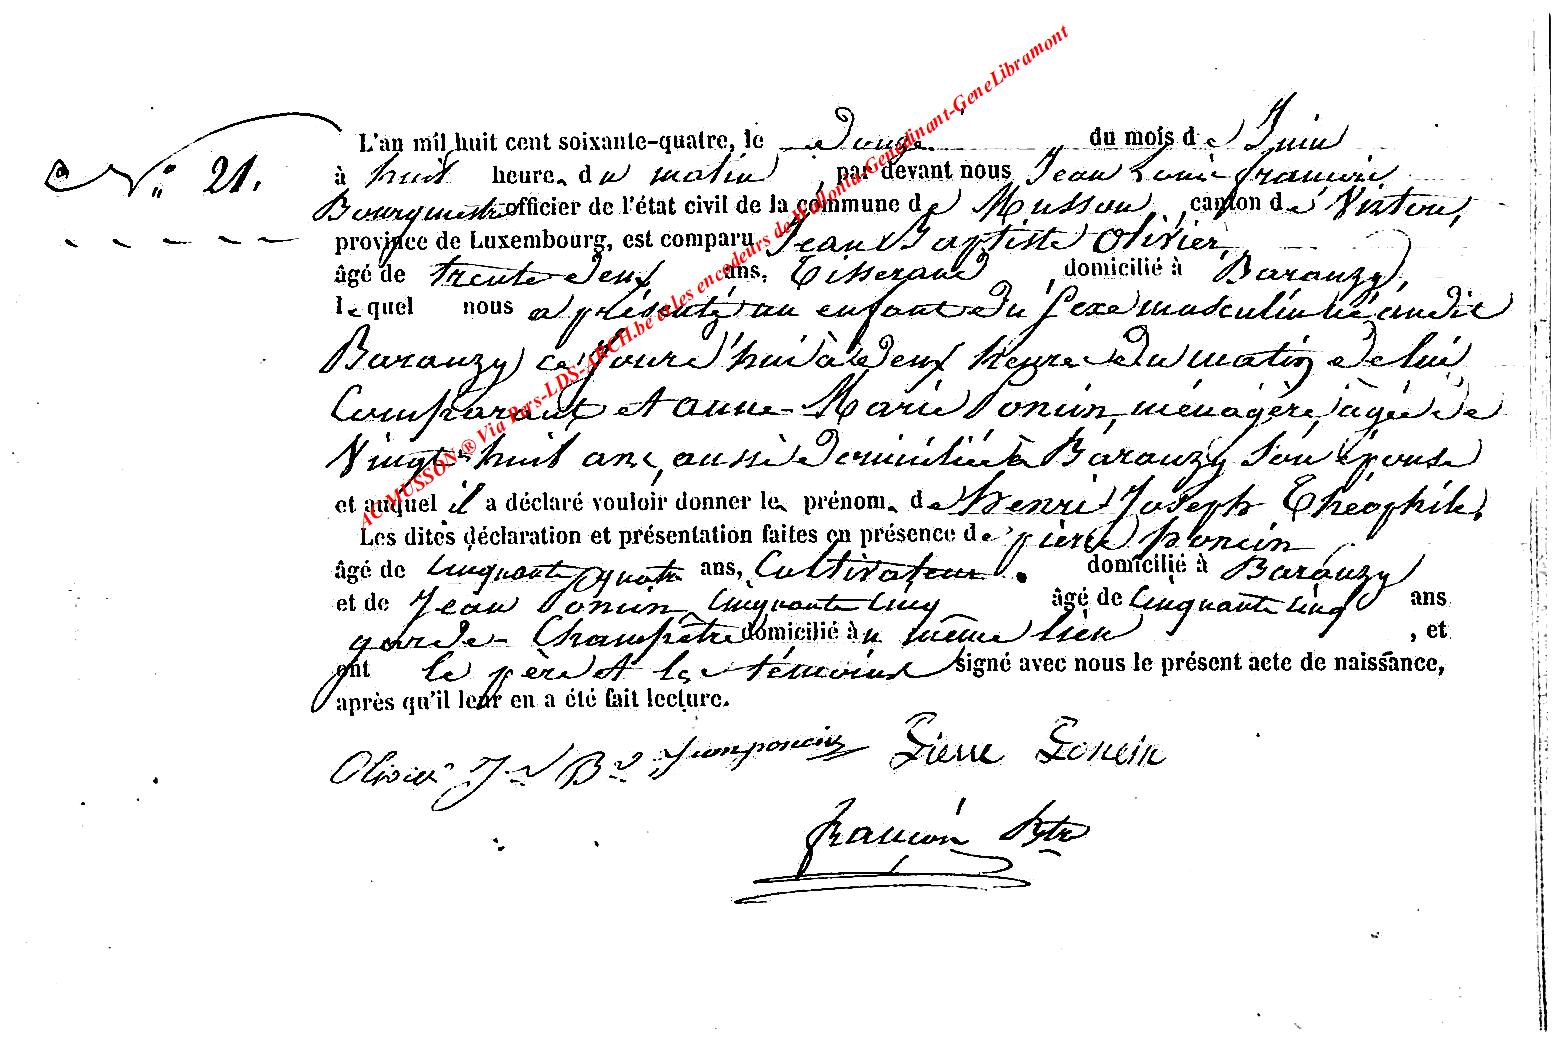 N° 21.
L'an mil huit cent soixante-quatre, le douze du mois de Juin
à huit heures du matin, par devant nous Jean Louis françois
Bourgmestre officier de l'état civil de la commune de Musson, canton de Virton,
province de Luxembourg, est comparu Jean Baptiste Olivier,
âgé de trente deux ans, Tisserand, domicilié à Baranzy,
lequel nous a présenté un enfant du sexe masculin né audit
Baranzy cejourd'hui à deux heures du matin de lui
Comparant et anne Marie Poncin, ménagère, âgée de
Vingt-huit ans, aussi domiciliée à Baranzy son épouse
et auquel il a déclaré vouloir donner les prénoms de Henri Joseph Théophile.
Les dites déclaration et présentation faites en présence de pierre poncin
âgé de Cinquante quatre ans, Cultivateur. domicilié à Baranzy
et de Jean Poncin, Cinquante cinq âgé de Cinquante cinq ans
garde-Champêtre domicilié au même lieu, et
ont le père et les témoins signé avec nous le présent acte de naissance,
après qu'il leur en a été fait lecture.
Olivier Jn Bte Jeanponcin Pierre Poncin
françois Btre
AC MUSSON ® Via Pers-LDS-ARCH.be et les encodeurs de Wallonia-Genedinant-GeneLibramont